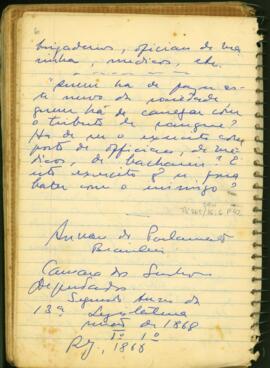 6
brigadeiros, oficiais de ma-
rinha, medicos, etc.
"Quem ha de
nuvo da sociedade
quem há de carregar com
o tributo de sangue?
Ha de ser o exercito com-
posto de officiaes, de mé-
dicos, de bachareis? E
este exercito é para
bater com o inimigo?
Annaes do Parlamento
Brasileiro
Camara dos Senhores
Deputados
Segundo Anno da
13ª Legislatura
de 1868
Tº 1º
RJ, 1868